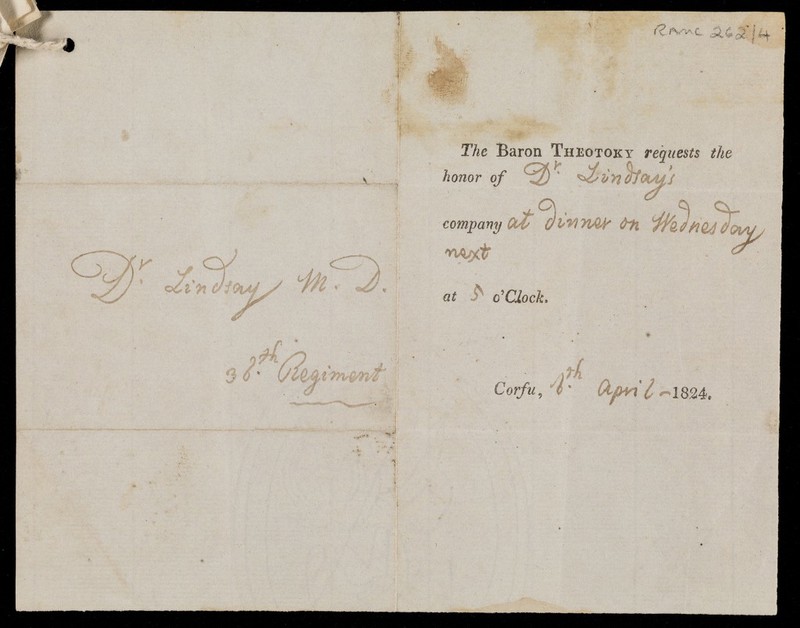 RAMC 262/4
The Baron THEOTOKY requests the
honor of Dr. Lindsay's
company at dinner on Wednesday
next
at 5 o'Clock.
Corfu, 6th. April - 1824.
Dr. Lindsay M. D.
36.th Regiment